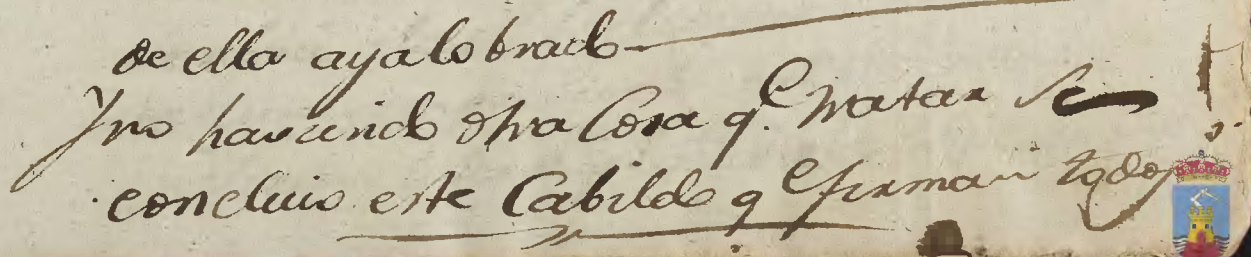 de ella aya lo brado
Y no haviendo otra Cosa q.e tratar se
concluio este Cabildo q.e firman todos